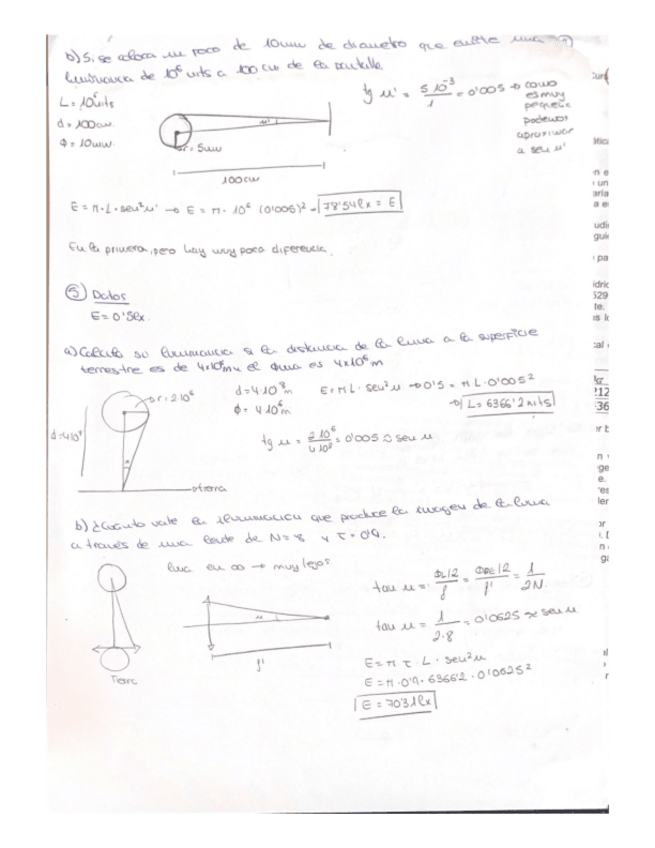 b) Si se coloca un foco de 10mm de diametro que emite una
luminancia de 10⁶ nits a 100 cm de la pantalla.
L = 10⁶ nits
d = 100cm
Φ = 10mm
r = 5mm
100cm
tg u' = 5 10⁻³/1 = 0'005 → como
es muy
pequeño
podemos
aproximar
a sen u'
E = π·L·sen²u' → E = π·10⁶ (0'005)² → 78'54lx = E
En la primera, pero hay muy poca diferencia.
⑤ Datos
E = 0'5lx.
a) Calcula su luminancia si la distancia de la luna a la superficie
terrestre es de 4x10⁸m y el Φluna es 4x10⁶m
r = 2·10⁶
d=4·10⁸
tierra
d=4·10⁸m
Φ = 4·10⁶m
E = πL·sen²u → 0'5 = πL·0'005²
→ L = 6366'2 nits
tg u = 2 10⁶/4 10⁸ = 0'005 ≈ sen u
b) ¿Cuánto vale la iluminación que produce la imagen de la luna
a través de una lente de N=8 y τ = 0'9.
luna en ∞ → muy lejos
Tierra
u
f'
tan u = ΦL/2/f = ΦPE/2/f' = 1/2N
tan u = 1/2·8 = 0'0625 ≈ sen u
E = π τ·L·sen²u
E = π·0'9·6366'2·0'0625²
E = 70'31lx